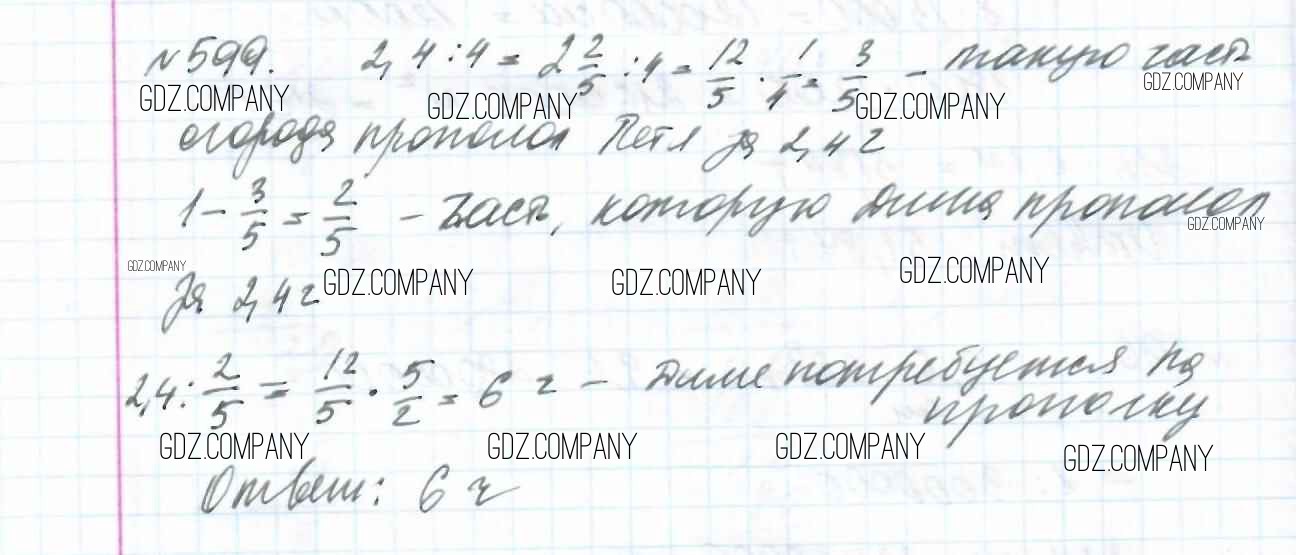 №599. 2,4 : 4 = 2 2/5 : 4 = 12/5 · 1/4 = 3/5 – такую часть
GDZ.COMPANY GDZ.COMPANY GDZ.COMPANY GDZ.COMPANY
огорода прополол Петя за 2,4 ч
1 – 3/5 = 2/5 – часть, которую Дима прополол
GDZ.COMPANY
GDZ.COMPANY GDZ.COMPANY GDZ.COMPANY GDZ.COMPANY
за 2,4 ч
2,4 : 2/5 = 12/5 · 5/2 = 6 ч – Диме потребуется на
прополку
GDZ.COMPANY GDZ.COMPANY GDZ.COMPANY GDZ.COMPANY
Ответ: 6 ч